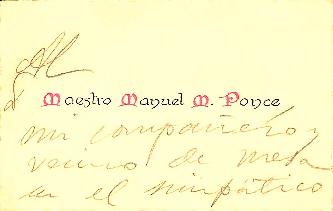 Al
Maestro Manuel M. Ponce
mi compañero y
vecino de mesa
en el simpático